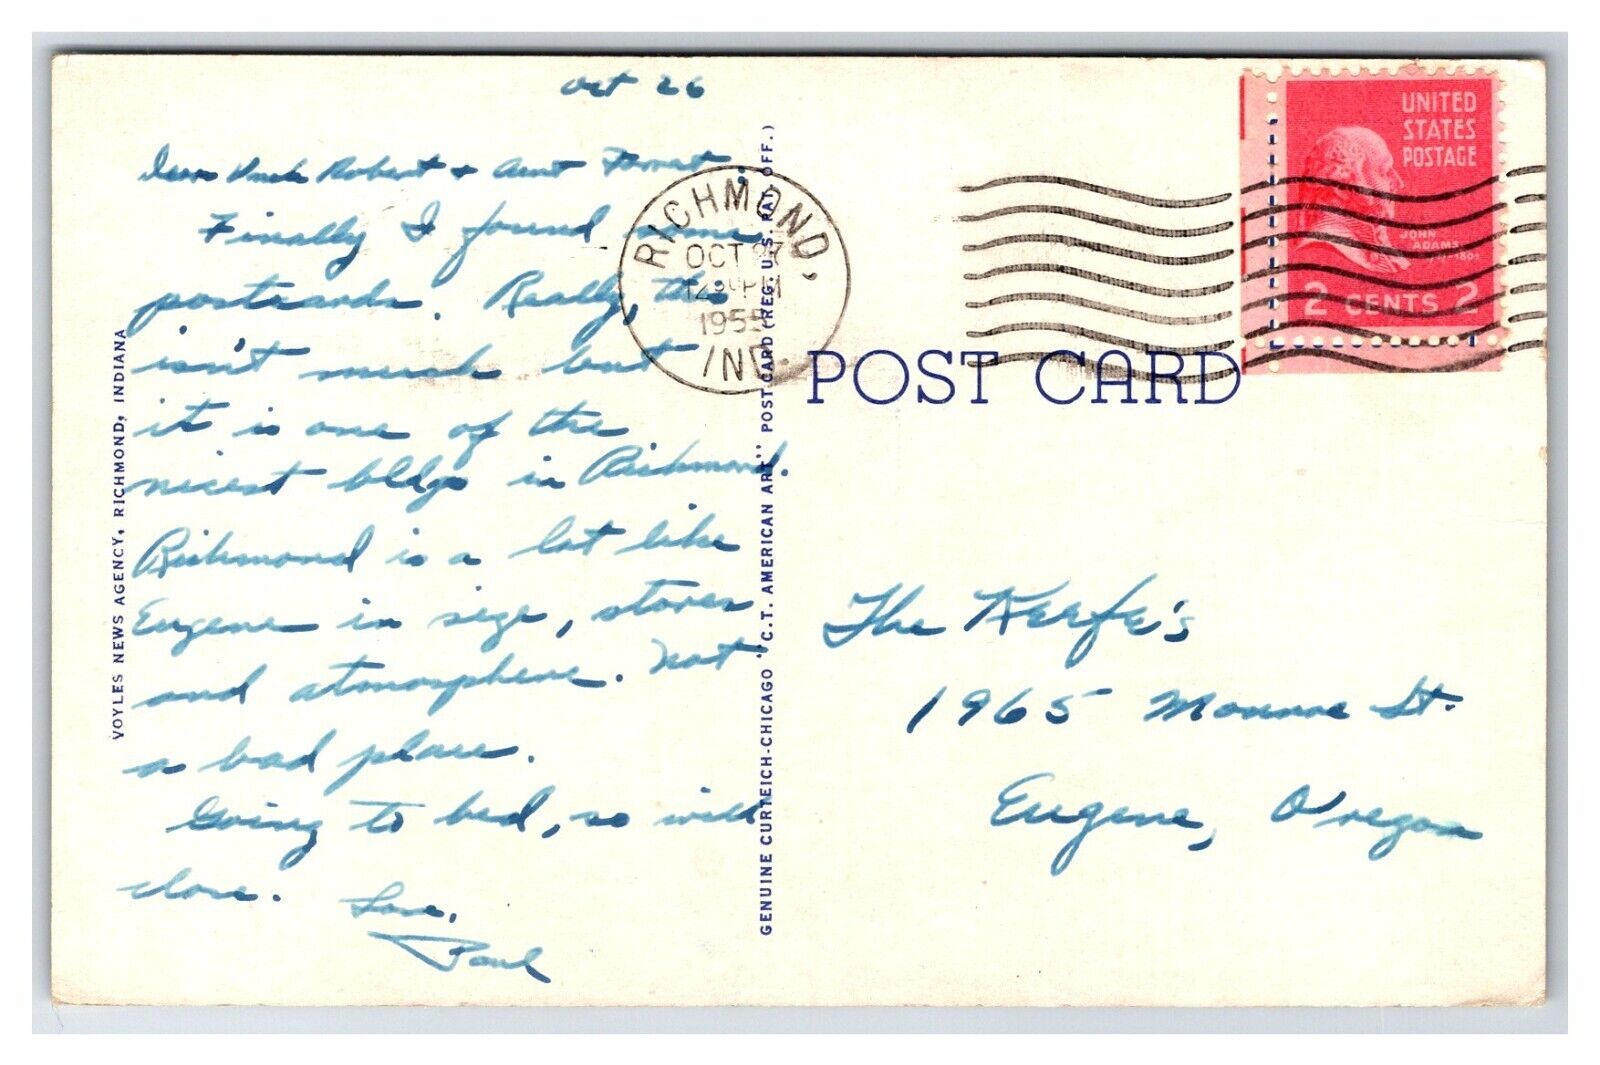 Oct 26
Dear Uncle Robert + Aunt Forrest,
Finally I found some
postcards. Really, this
isn't much but
it is one of the
nicest bldgs in Richmond.
Richmond is a lot like
Eugene in size, stores
and atmosphere. Not
a bad place.
Going to bed, so will
close. Love,
Paul
VOYLES NEWS AGENCY, RICHMOND, INDIANA
GENUINE CURTEICH-CHICAGO "C.T. AMERICAN ART" POST CARD (REG. U.S. PAT. OFF.)
RICHMOND,
OCT 27
1955
IND.
UNITED
STATES
POSTAGE
JOHN
ADAMS
2 CENTS 2
POST CARD
The Keefe's
1965 Monroe St.
Eugene, Oregon